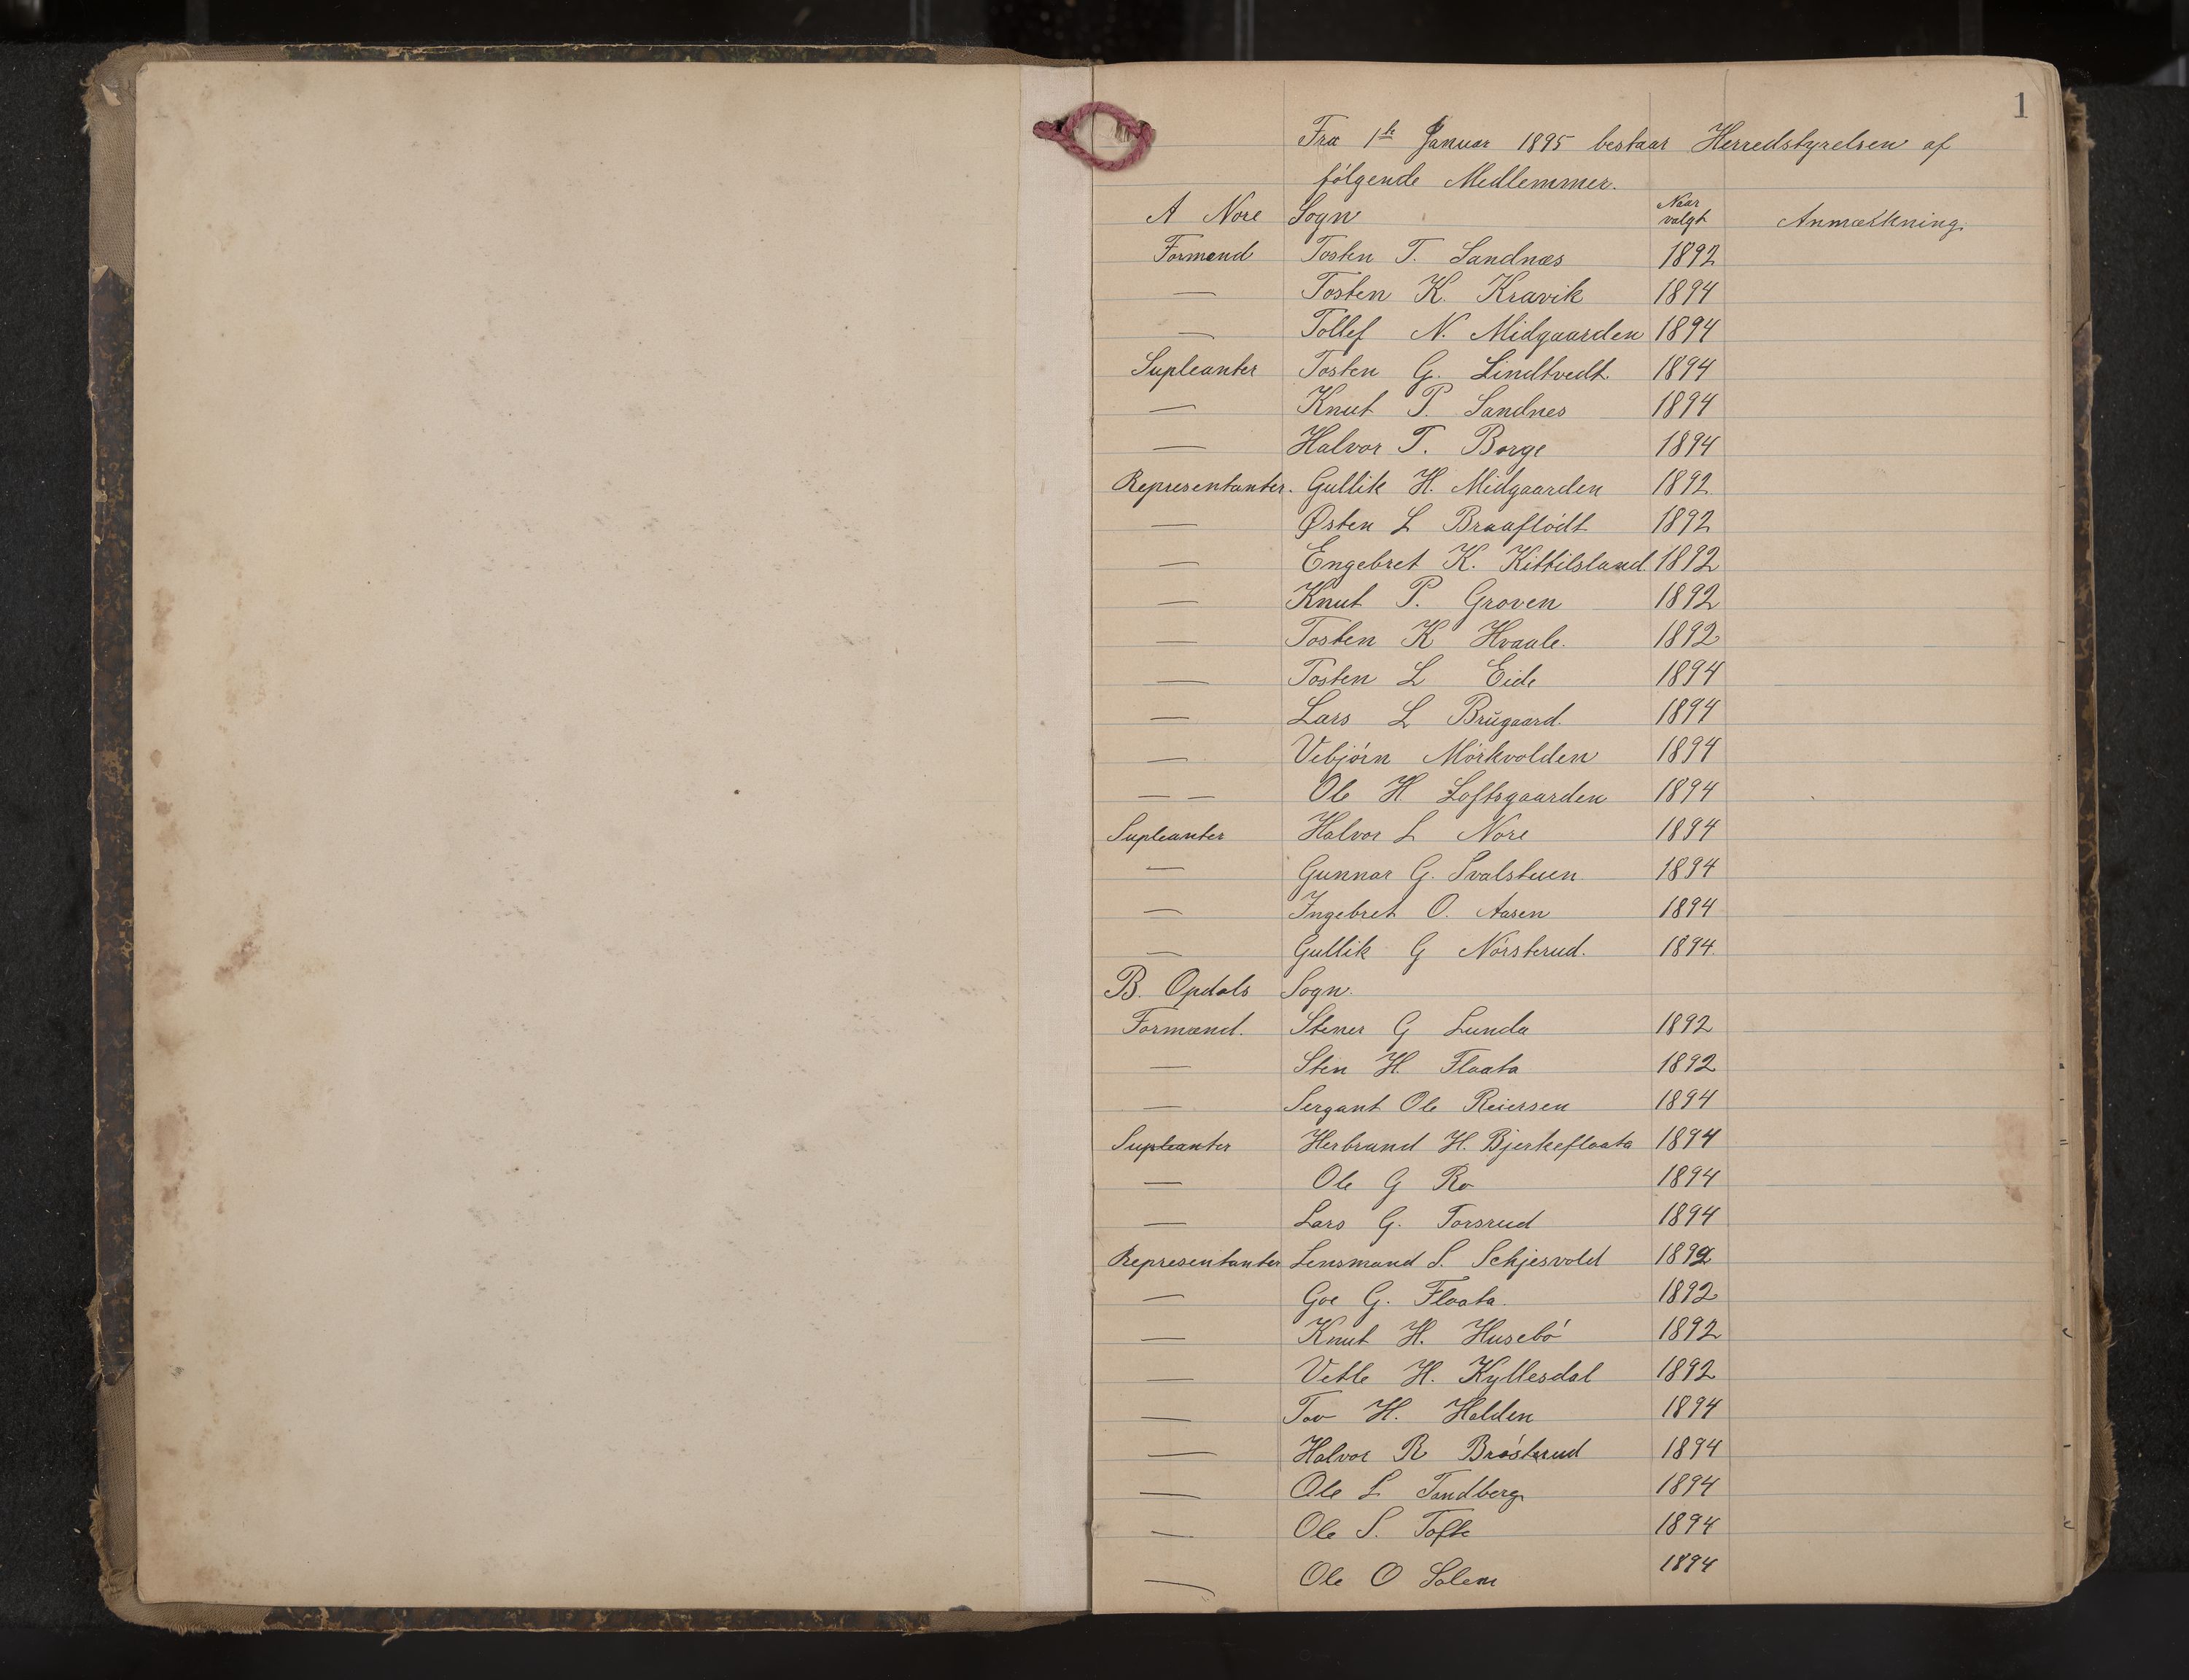 1
Fra 1ste Januar 1895 bestaar Herredstyrelsen af
følgende Medlemmer.
A Nore Sogn Naar valgt Anmærkning
Formænd Tosten T. Sandnæs 1892
— Tosten K. Kravik 1894
— Tollef N. Midgaarden 1894
Supleanter Tosten G. Lindtvedt 1894
— Knut P. Sandnes 1894
— Halvor T. Borge 1894
Representanter. Gullik H. Midgaarden 1892
— Østen L Braaflødt 1892
— Engebret K. Kittilsland 1892
— Knut P. Groven 1892
— Tosten K Hvaale. 1892
— Tosten L Eide 1894
— Lars L Brŭgaard. 1894
— Vebjørn Mørkvolden 1894
— — Ole H Loftsgaarden 1894
Supleanter Halvor L Nore 1894
— Gunnar G. Svalstuen 1894
— Ingebret O. Aasen 1894
— Gullik G Nørsterud. 1894.
B. Opdals Sogn.
Formænd. Stener G Lunda 1892
— Sten H. Flaata 1892
— Sergant Ole Reiersen 1894
Supleanter Herbrand H. Bjerkeflaata 1894
— Ole G Ro 1894
— Lars G. Torsrud 1894
Representanter Lensmand S. Schjesvold 1892
— Goe G. Flaata. 1892
— Knut H. Husebø 1892
— Vetle H. Kyllesdal 1892
— Tov H. Halden 1894
— Halvor R Brøsterud 1894
— Ole L Tandberg 1894
— Ole S. Tofte 1894
— Ole O Solem 1894